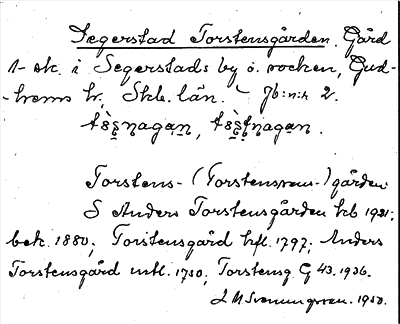 Segerstad Torstensgården. Gård
1 sk. i Segerstads by o. socken, Gud-
-hems hd, Skb. län. - Jb:n:r 2.
Torstens- (Torstensson-)gården
S Anders Torstensgården kb 1921;
bek. 1880; Torstensgård hfl. 1797; Anders
Torstensgård mtl. 1750; Torsteng G 43. 1936.
1950.